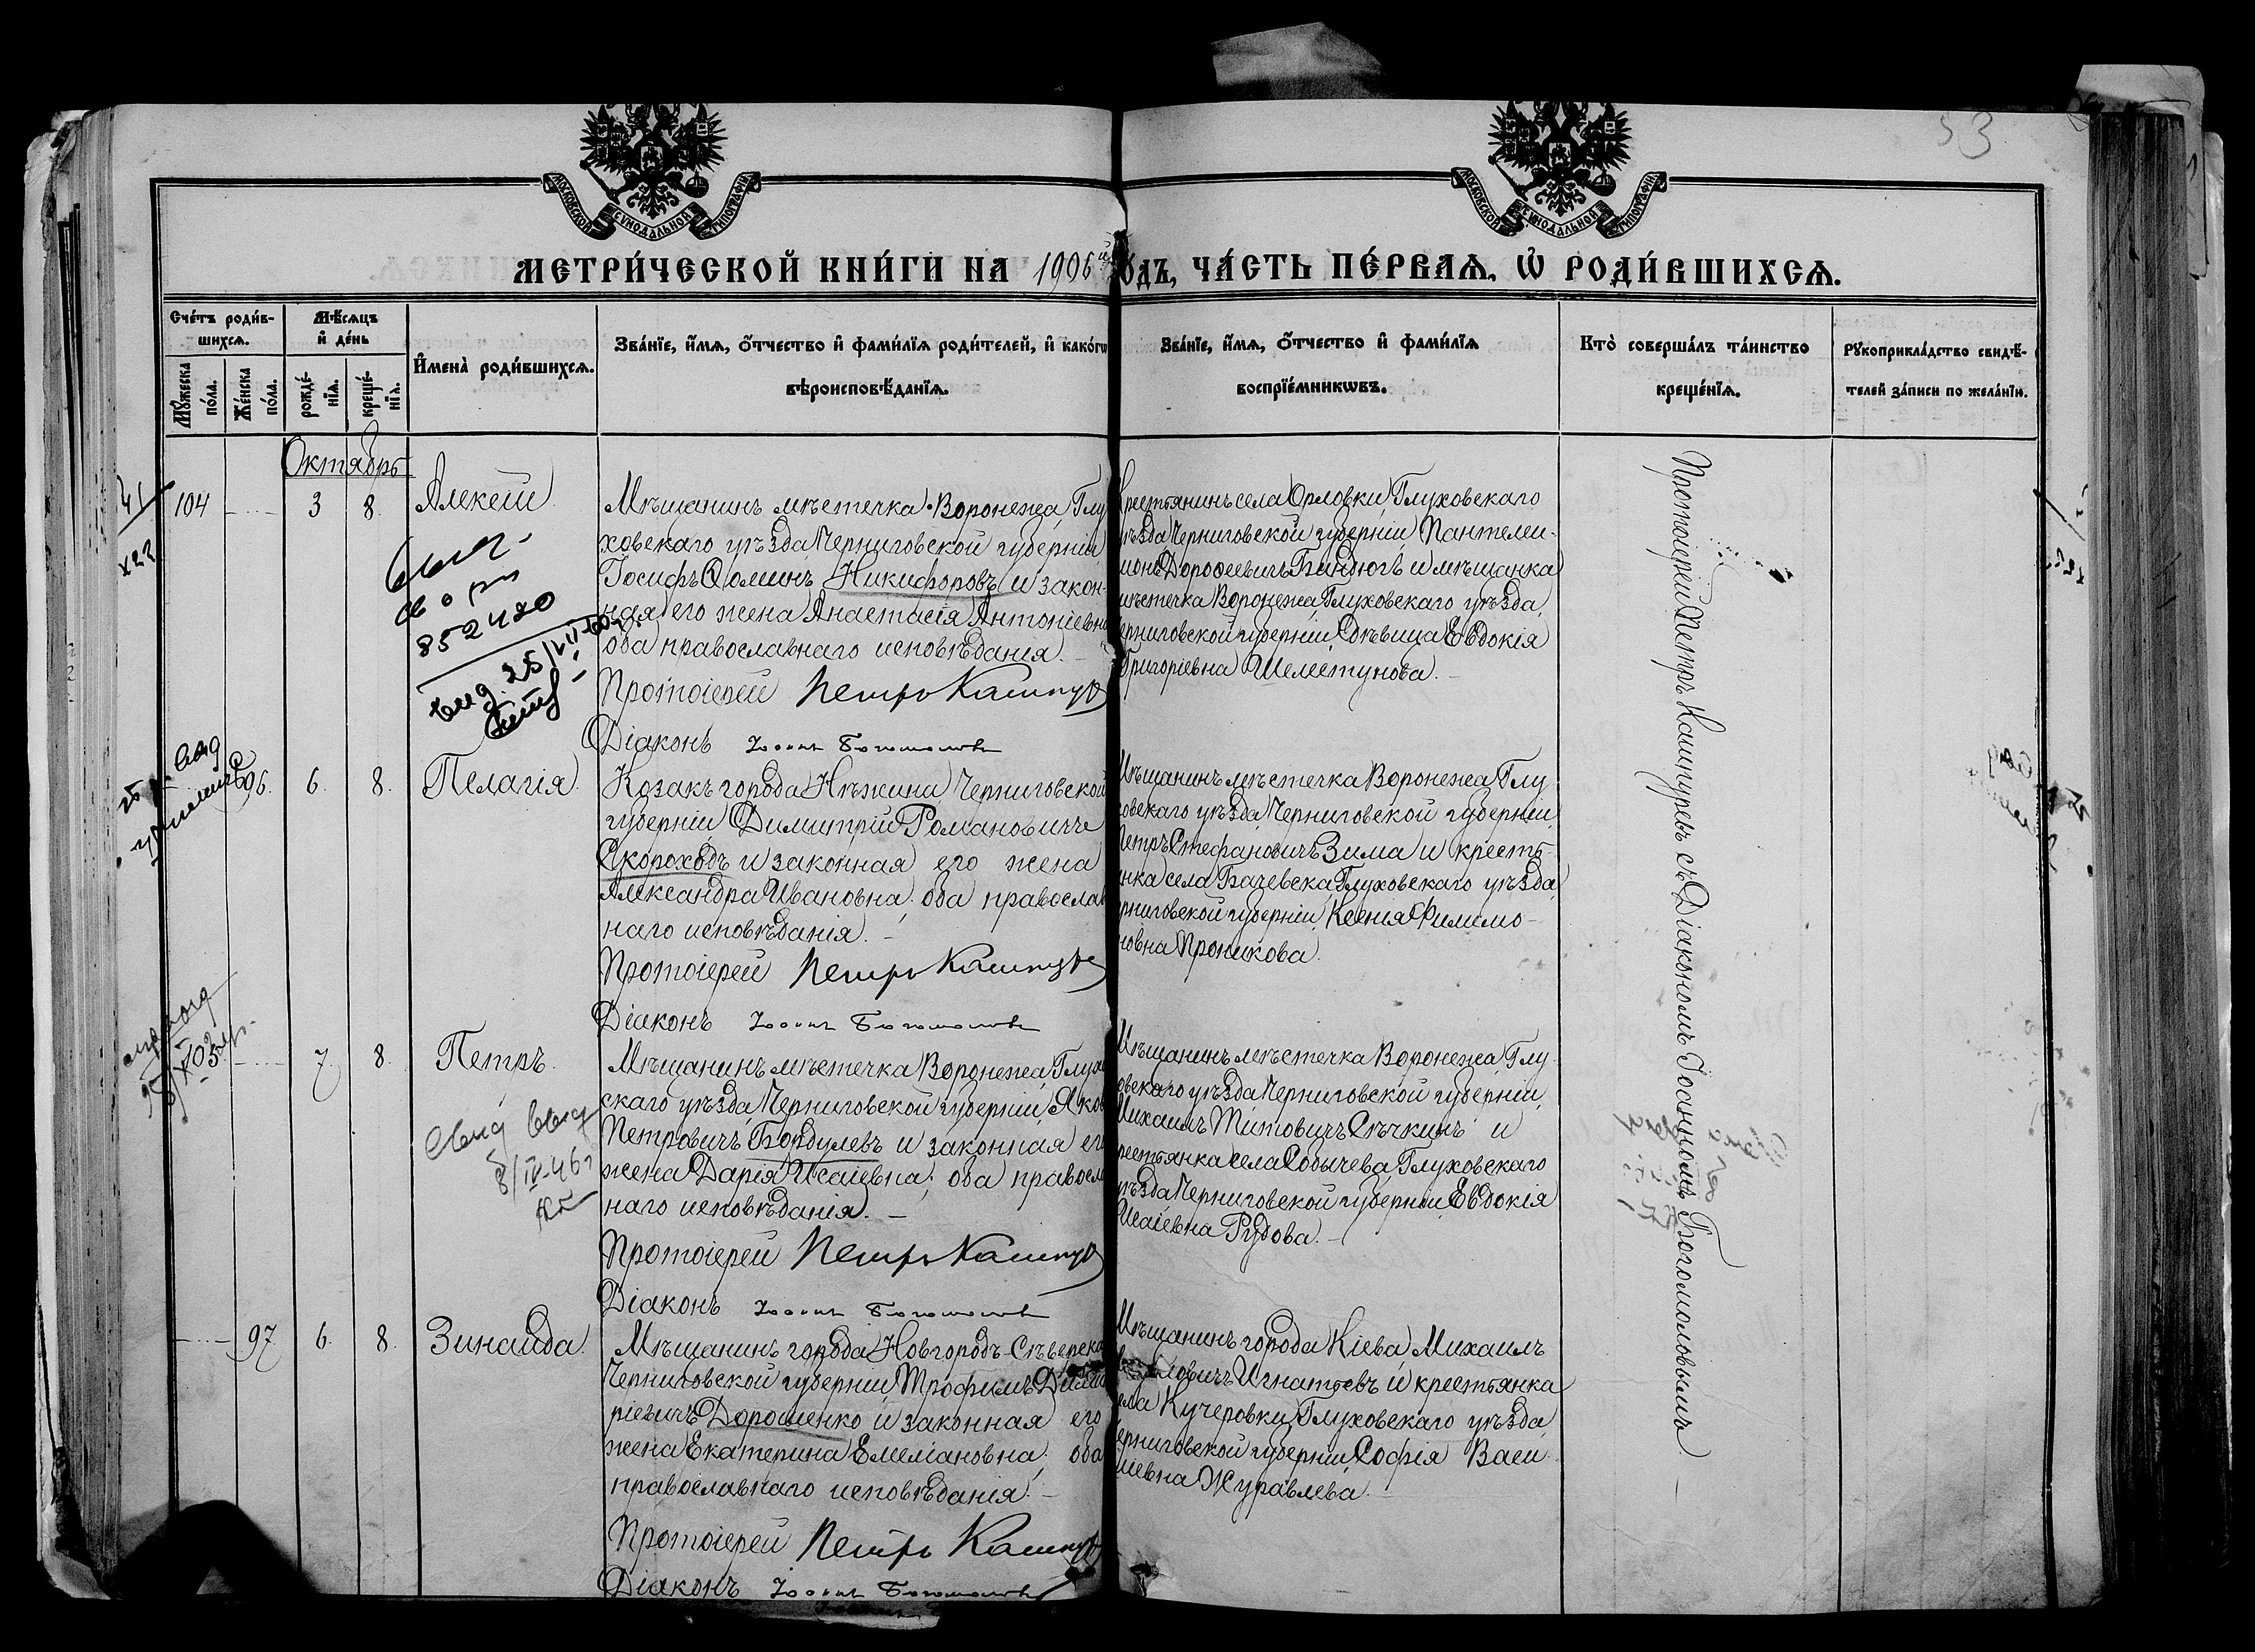 53
МОСКОВСКОЙ СѴНОДАЛЬНОЙ ТИПОГРАФІИ
МОСКОВСКОЙ СѴНОДАЛЬНОЙ ТИПОГРАФІИ
МЕТРИ́ЧЕСКОЙ КНИ́ГИ НА 1906й
ОДЪ, ЧА́СТЬ ПЕ́РВАѦ, Ѡ҆ РОДИ́ВШИХСѦ.
Сче́тъ роди́в-
шихсѧ.
Мꙋ́жеска по́ла.
Же́нска по́ла.
Мѣ́сѧцъ
и҆ де́нь
рожде́-
нїѧ.
креще́-
нїѧ.
И҆мена̀ роди́вшихсѧ.
Зва́нїе, и҆́мѧ, ѻ҆́тчество и҆ фами́лїѧ роди́телей, и҆ како́гѡ
вѣроисповѣ́данїѧ.
Зва́нїе, и҆́мѧ, ѻ҆́тчество и҆ фами́лїѧ
воспрїе́мникѡвъ.
Кто̀ соверша́лъ та́инство
креще́нїѧ.
Рꙋкоприкла́дство свидѣ́-
телей за́писи по жела́нїю.
Октябрь
104 3 8. Алексѣй
Мѣщанинъ мѣстечка Воронежа, Глу
ховскаго уѣзда Черниговской губерніи
Іосифъ Ѳоминъ Никифоровъ и закон-
ная его жена Анастасія Антоніевна
оба православнаго исповѣданія. –
Протоіерей Петръ Кашпур
Діаконъ Іоаннъ Богомоловъ
крестьянинъ села Орловки, Глуховскаго
уѣзда Черниговской губерніи Пантелеи-
монъ Дорофеевичъ Биндюгъ и мѣщанка
мѣстечка Воронежа, Глуховскаго уѣзда,
ерниговской губерніи, дѣвица Евдокія
Григоріевна Шелестунова. –
852420
96. 6. 8. Пелагія.
Козакъ города Нѣжина, Черниговской
губерніи Димитрій Романовичъ
Скороходъ и законная его жена
Александра Ивановна; оба православ
наго исповѣданія. –
Протоіерей Петръ Кашпур
Діаконъ Іоаннъ Богомоловъ
Мѣщанинъ мѣстечка Воронежа, Глу-
ховскаго уѣзда, Черниговской губерніи,
Петръ Стефановичъ Зима и кресть-
нка села Бачевска, Глуховскаго уѣзда,
рниговской губерніи, Ксенія Филимо-
новна Проникова.
7. 8. Петръ.
Мѣщанинъ мѣстечка Воронежа, Глухо
скаго уѣзда, Черниговской губерніи, Яков
Петровичъ Бондулевъ и законная его
жена Дарія Исаіевна; оба правосл
наго исповѣданія. –
Протоіерей Петръ Кашпур
Діаконъ Іоаннъ Богомоловъ
Мѣщанинъ мѣстечка Воронежа, Глу-
овскаго уѣзда Черниговской губерніи,
Михаилъ Титовичъ Сѣчкинъ и
рестьянка села Собычева, Глуховскаго
уѣзда Черниговской губерніи, Евдокія
Исаіевна Рудова. –
8/IV-46г
97 6. 8. Зинаида.
Мѣщанинъ города Новгородъ-Сѣверска
Черниговской губерніи, Трофимъ Димит
ріевичъ Дорошенко и законная его
жена Екатерина Емеліановна; оба
православнаго исповѣданія. –
Протоіерей Петръ Кашпур
Діаконъ Іоаннъ Богомоловъ
Мѣщанинъ города Кіева Михаилъ
ловичъ Игнатьевъ и крестьянка
села Кучеровки, Глуховскаго уѣзда,
ерниговской губерніи, Софія Васи-
ліевна Журавлева. –
Протоіерей Петръ Кашпуревъ съ Діакономъ Іоанномъ Богомоловымъ –